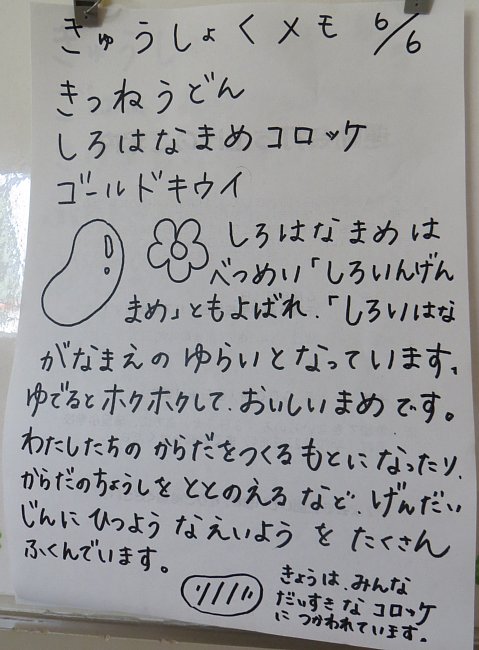 きゅうしょくメモ 6/6
きつねうどん
しろはなまめコロッケ
ゴールドキウイ
しろはなまめは
べつめい「しろいんげん
まめ」ともよばれ、「しろいはな
がなまえのゆらいとなっています。
ゆでるとホクホクして、おいしいまめです。
わたしたちのからだをつくるもとになったり、
からだのちょうしをととのえるなど、げんだい
じんにひつようなえいようをたくさん
ふくんでいます。
きょうは、みんな
だいすきなコロッケ
につかわれています。